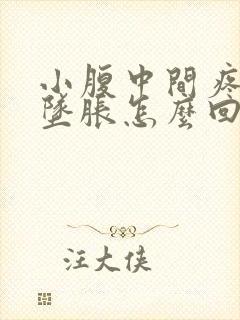 小腹中間疼
墜脹怎麼回
汪大侠